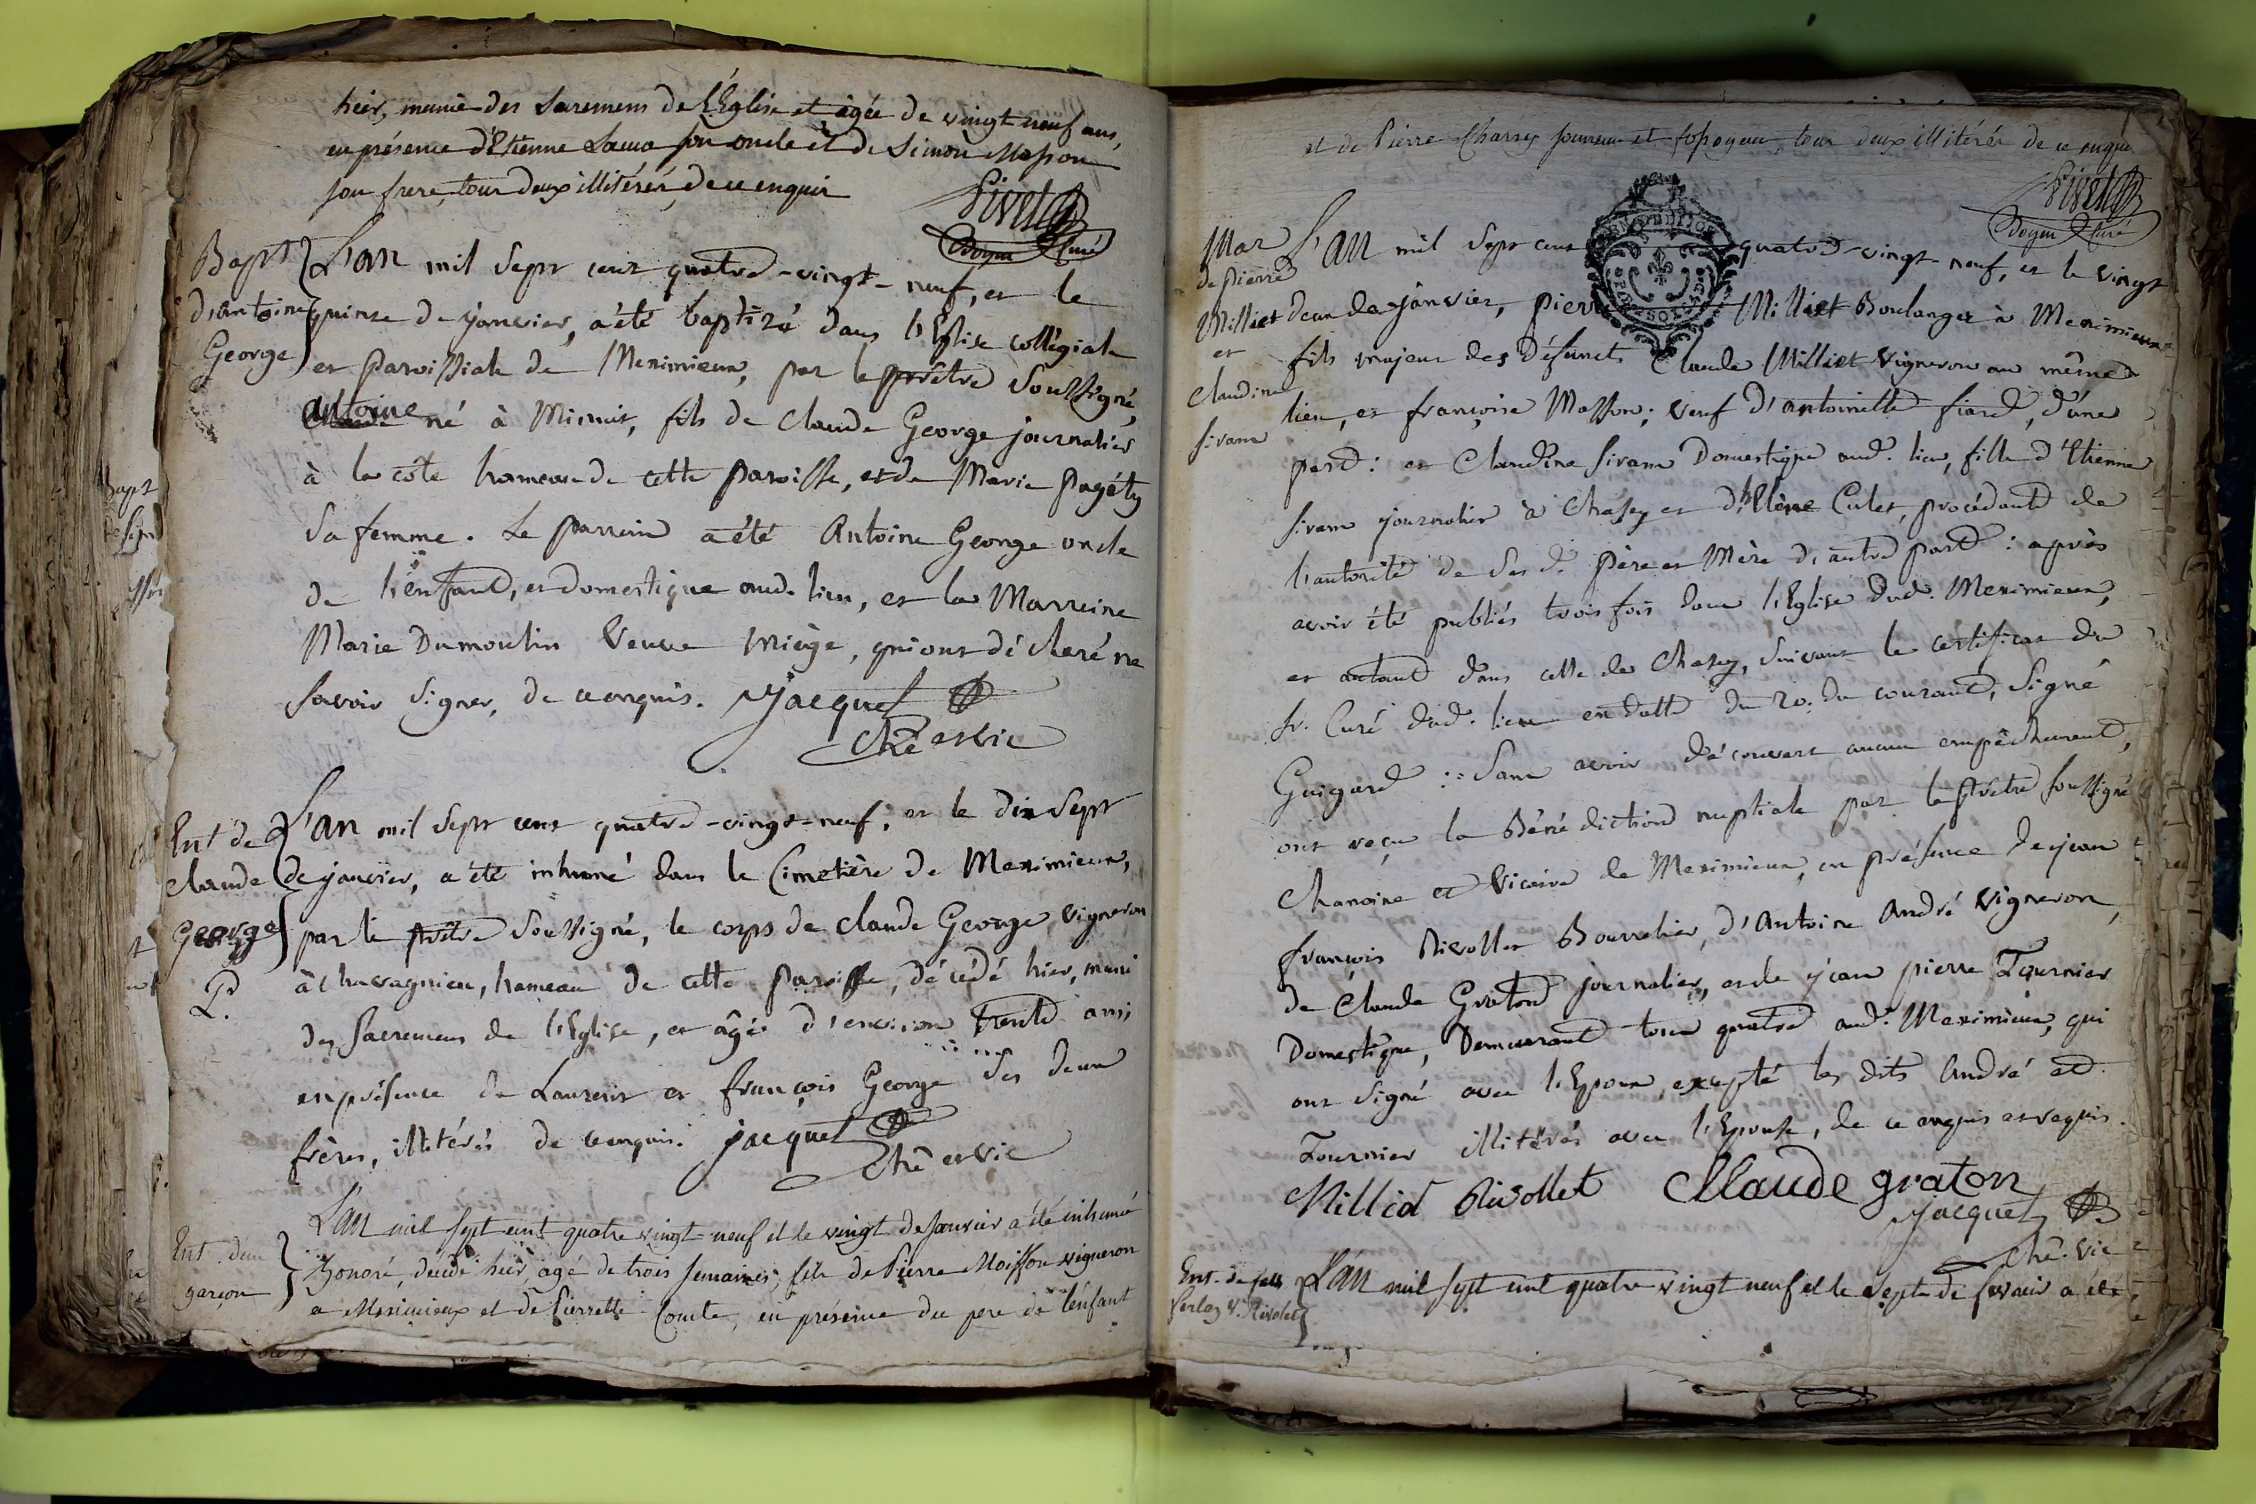 hier, munie des Sacremens de L'Eglise et agée de vingt neuf ans,
en présence d'Etienne Lama son oncle et de Simon Masson
son frere, tous deux illitérés, de ce enquis
Pivet
Doyen Curé
Bapt.
d'antoine
George
L'an mil Sept cent quatre-vingt-neuf, et le
quinze de janvier, a été baptizé dans l'Eglise collégiale
et paroissiale de Meximieux, par le prêtre Soussigné,
Antoine né à Minuit, fils de Claude George journalier
à la côte hameau de cette paroisse, et de Marie Pagéty
Sa femme. Le parrein a été Antoine George oncle
de l'enfant, et domestique aud. lieu, et la Marreine
Marie Dumoulin Veuve Miége, qui ont déclaré ne
Savoir Signer, de ce enquis. Jacquet
Chne et vic
Ent de
claude
George
P.
L'an mil Sept cent quatre-vingt-neuf, et le dix Sept
de janvier, a été inhumé dans le Cimetière de Meximieux,
par le prêtre Soussigné, le corps de claude George vigneron
à Chavagnieu, hameau de cette paroisse, décédé hier, muni
des Sacremens de l'Eglise, et âgé d'environ trente ans;
en présence de Laurent et françois George Ses deux
frères, illitérés de ce enquis. jacquet
Chne et vic
Ent. d'un
garçon
L'an mil sept cent quatre vingt neuf et le vingt de Janvier a été inhumé
honoré, décédé hier, agé de trois semaines, fils de Pierre Moisson vigneron
a Meximieux et de Pierrette Comte, en présence du pere de l'enfant
et de Pierre Charvey sonneur et fossoyeur, tous deux illitérés de ce enquis
Pivet
Doyen Curé
Mar
de pierre
Milliet
et
Claudine
Siram
L'an mil Sept cent quatre-vingt neuf, et le vingt
deux de janvier, pierre Milliet Boulanger à Meximieux
fils majeur des Défunts Claude Milliet vigneron au même
lieu, et françoise Masson; veuf d'antoinette fiard, d'une
part: et Claudine Siram Domestique aud. lieu, fille d'Etienne
Siram journalier à Chasey et d'hélène Culet, procédant de
l'autorité de Ses d. père et Mère d'autre part: après
avoir été publiés trois fois dans l'Eglise dud. Meximieux,
et autant dans celle de Chasey, Suivant le certificat du
Sr. Curé dud. lieu en datte du 20. du courant, Signé
Guigard :: Sans avoir découvert aucun empêchement,
ont reçu la Bénédiction nuptiale par le prêtre soussigné
Chanoine et Vicaire de Meximieux, en présence de jean
françois Rivollet Bourrelier, d'Antoine André vigneron,
de Claude Graton journalier, et de jean pierre Tournier
Domestique, Demeurant tous quatre aud. Meximieux, qui
ont Signé avec l'Epoux, excepté les dits André et
Tournier illitérés avec l'Epouse, de ce enquis et requis.
Milliet Rivollet Claude graton
Jacquet
Chne. Vic
Ent. de
Ve. Rivolet
L'an mil sept cent quatre vingt neuf et le sept de fevrier a été